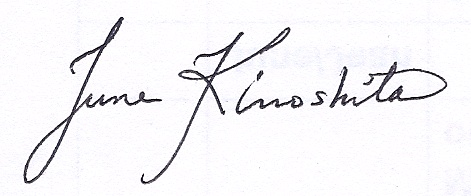 June Kinoshita